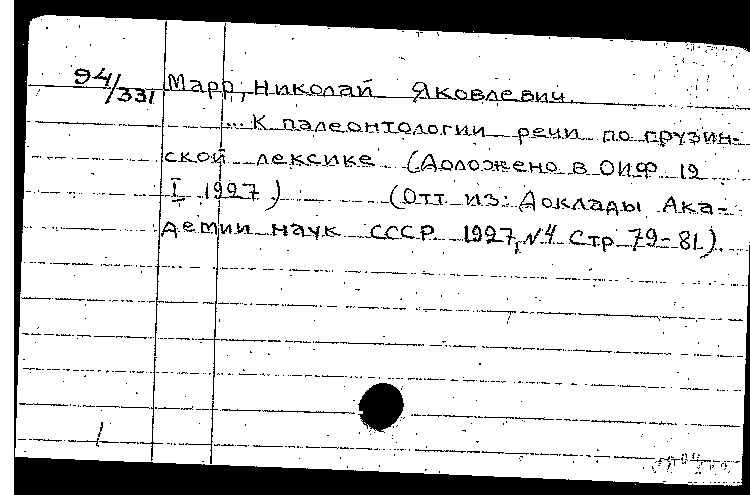 94/331 Марр, Николай Яковлевич
... К палеонтологии речи по грузин-
ской лексике (Доложено в ОИФ 19
I 1927) (Отт из: Доклады Ака-
демии наук СССР 1927, №4 Стр 79-81).